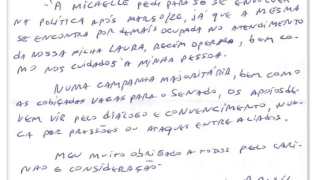 - "A MICHELLE PEDI PARA SÓ SE ENVOLVER
NA POLÍTICA APÓS MARÇO/26, JÁ QUE A MESMA
SE ENCONTRA POR DEMAIS OCUPADA NO ATENDIMENTO
DA NOSSA FILHA LAURA, RECÉM OPERADA, BEM CO-
MO NOS CUIDADOS À MINHA PESSOA.
NUMA CAMPANHA MAJORITÁRIA, BEM COMO
AS COBIÇADAS VAGAS PARA O SENADO, OS APOIOS DE-
VEM VIR PELO DIÁLOGO E CONVENCIMENTO, NUN-
CA POR PRESSÕES OU ATAQUES ENTRE ALIADOS.
MEU MUITO OBRIGADO A TODOS PELO CARI-
NHO E CONSIDERAÇÃO